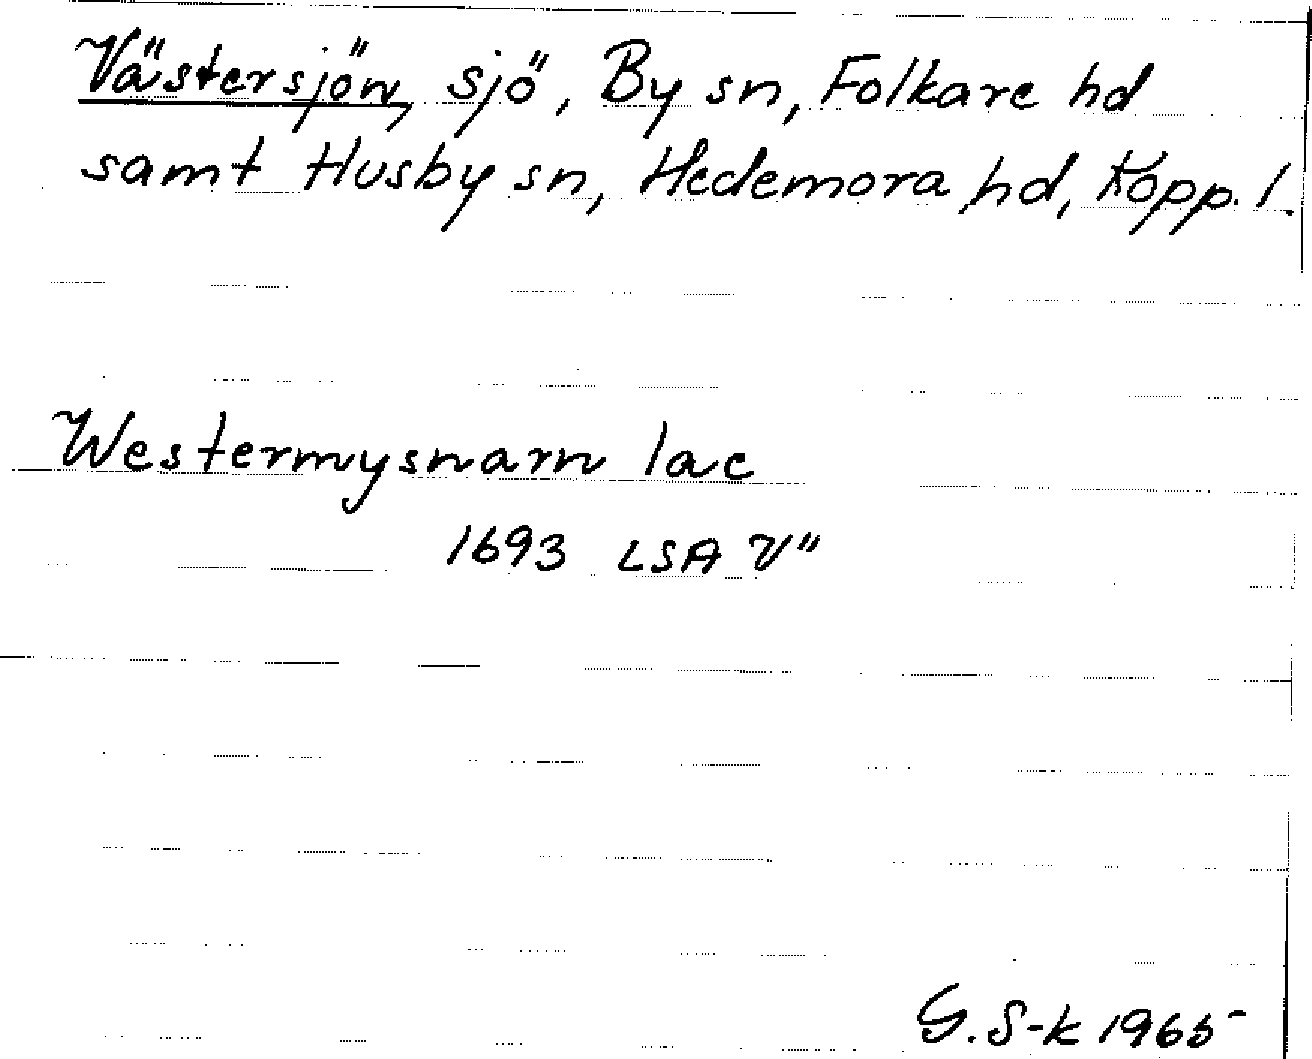 Västersjön, sjö, By sn, Folkare hd
samt Husby sn, Hedemora hd, Kopp. l.
Westermysnarn lac
1693 LSA V"
G. S-k 1965